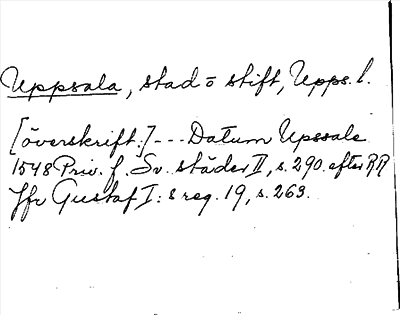 Uppsala, stad o stift, Upps. l.
[överskrift:] --- Datum Upssale
1548 Priv. f. Sv. städer II, s. 290. efter RR
Jfr Gustaf I:s reg. 19, s. 263.